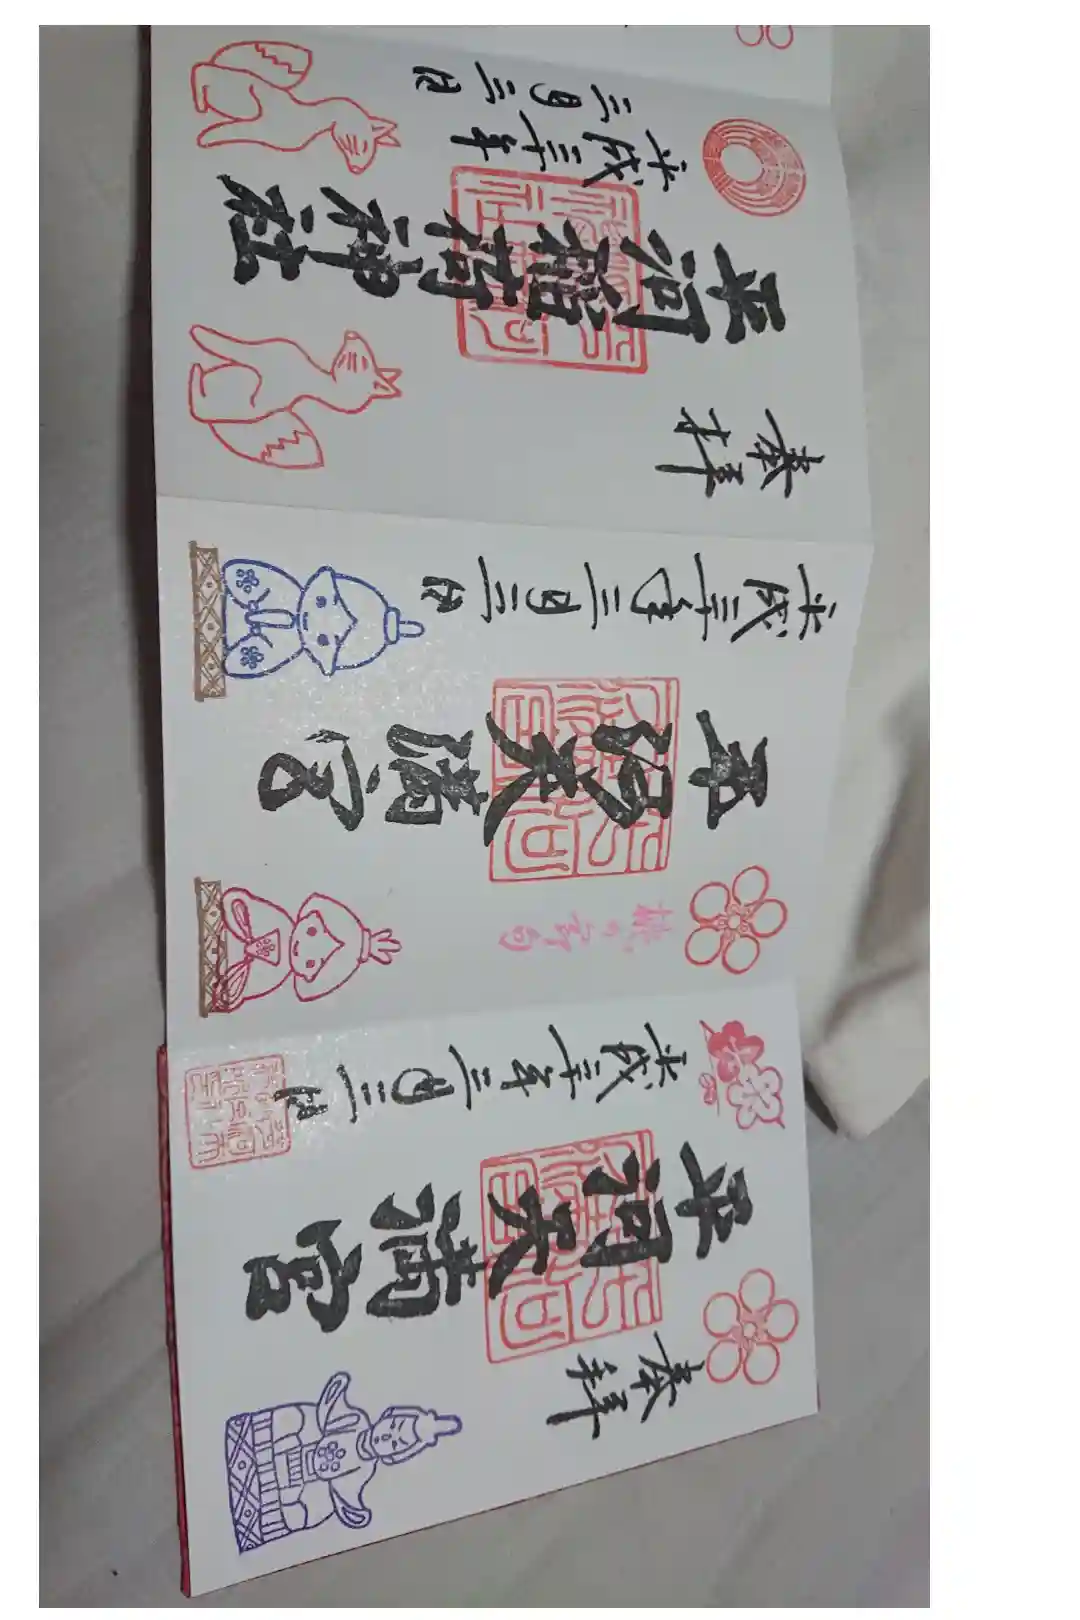 奉拝
平河天満宮
平成三十年三月三日
桃の節句
平河天満宮
平成三十年三月三日
奉拝
平河稲荷神社
平成三十年三月三日